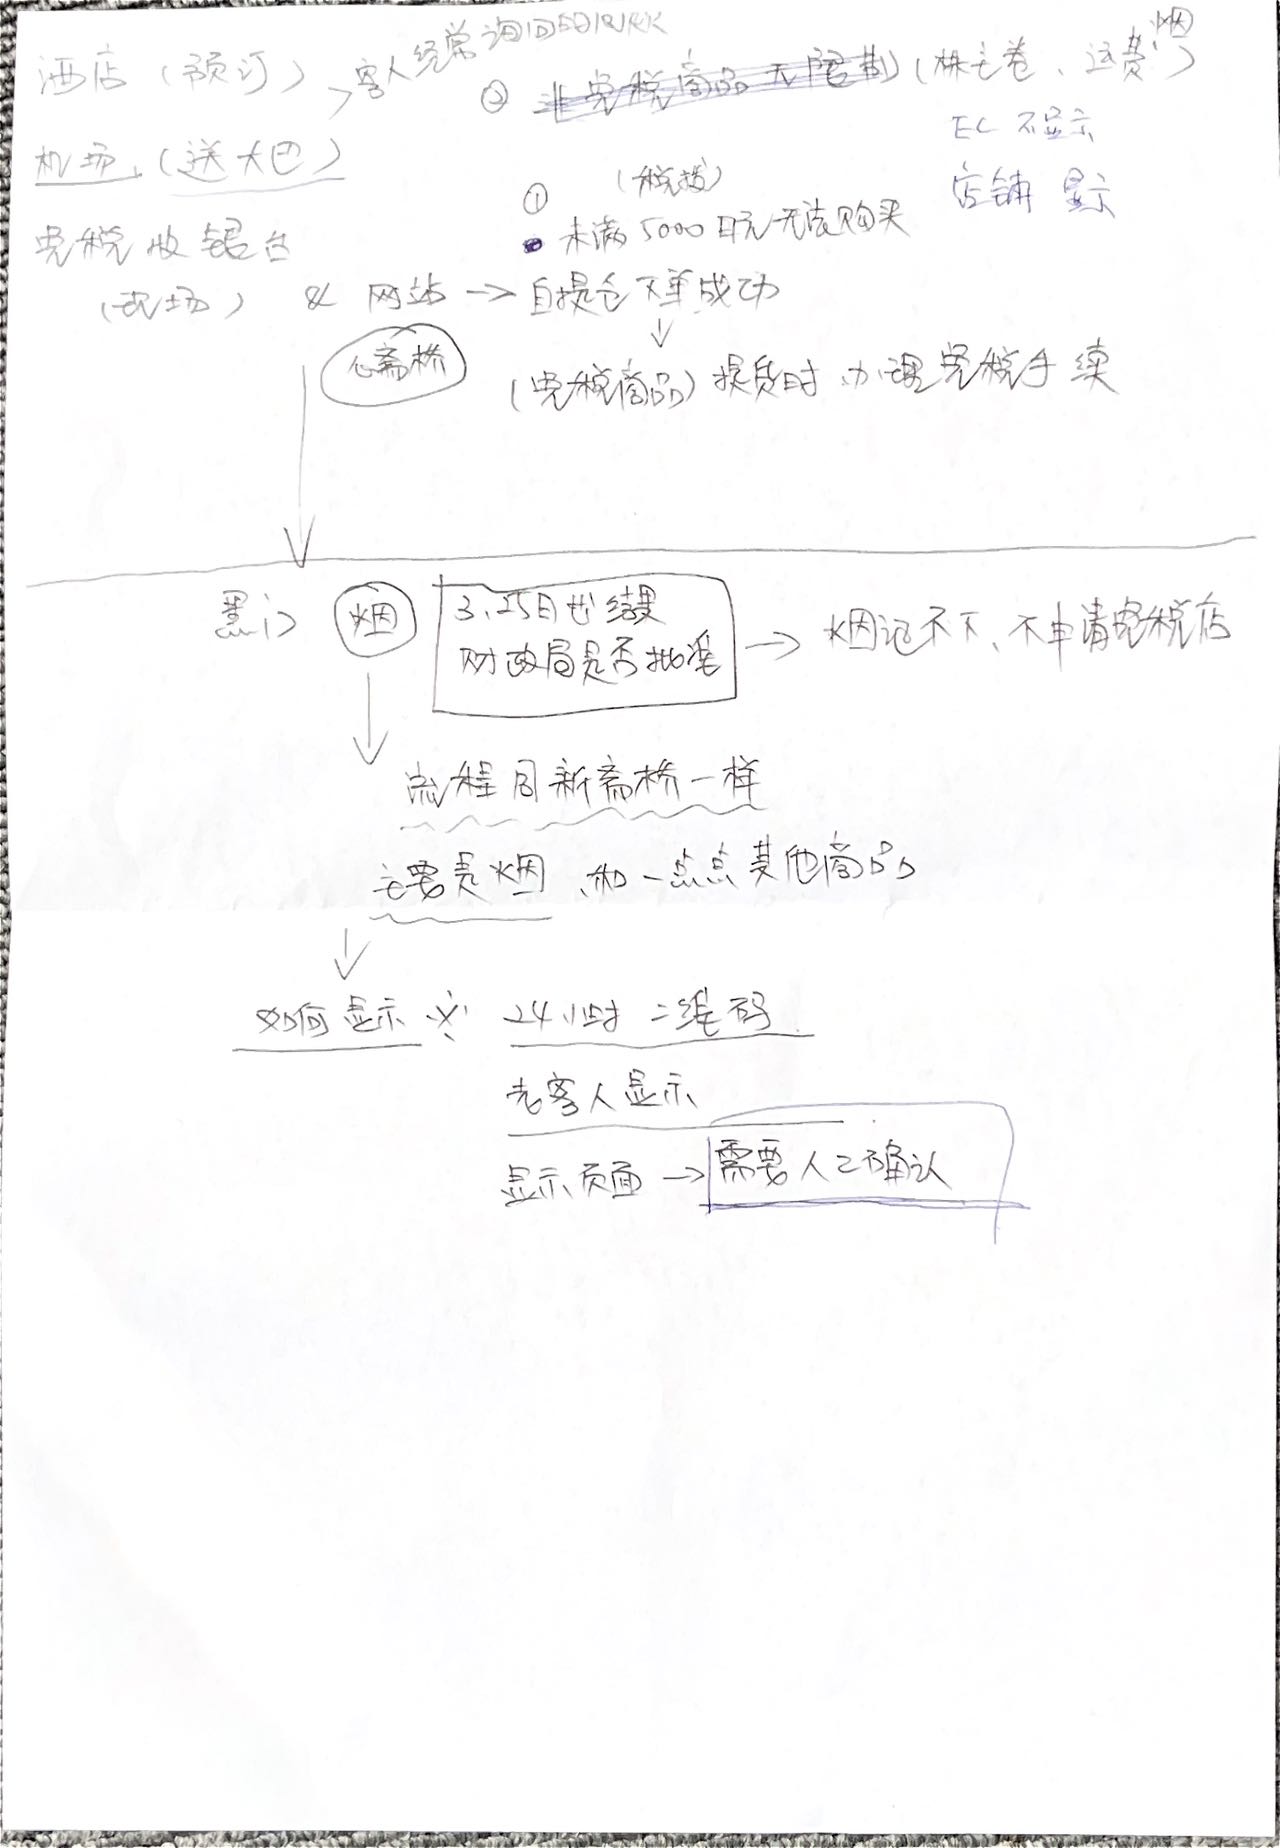 酒店（预订），客人经常询问
② 非免税商品无限制（株主卷、运费、烟）
EC 不显示
店铺 显示
机场，（送大巴）
① （税拨）
• 未满5000日元无法购买
免税收银台
（现场） & 网站 → 自提仓下单成功
↓
心斋桥
（免税商品）提货时办理免税手续
黑门 烟
3.25日出结果
财政局是否批准 → 烟证不下、不申请免税店
↓
流程同新斋桥一样
主要是烟、和一点点其他商品
↓
如何显示 ※ 24小时二维码
老客人显示
显示页面 → 需要人工确认